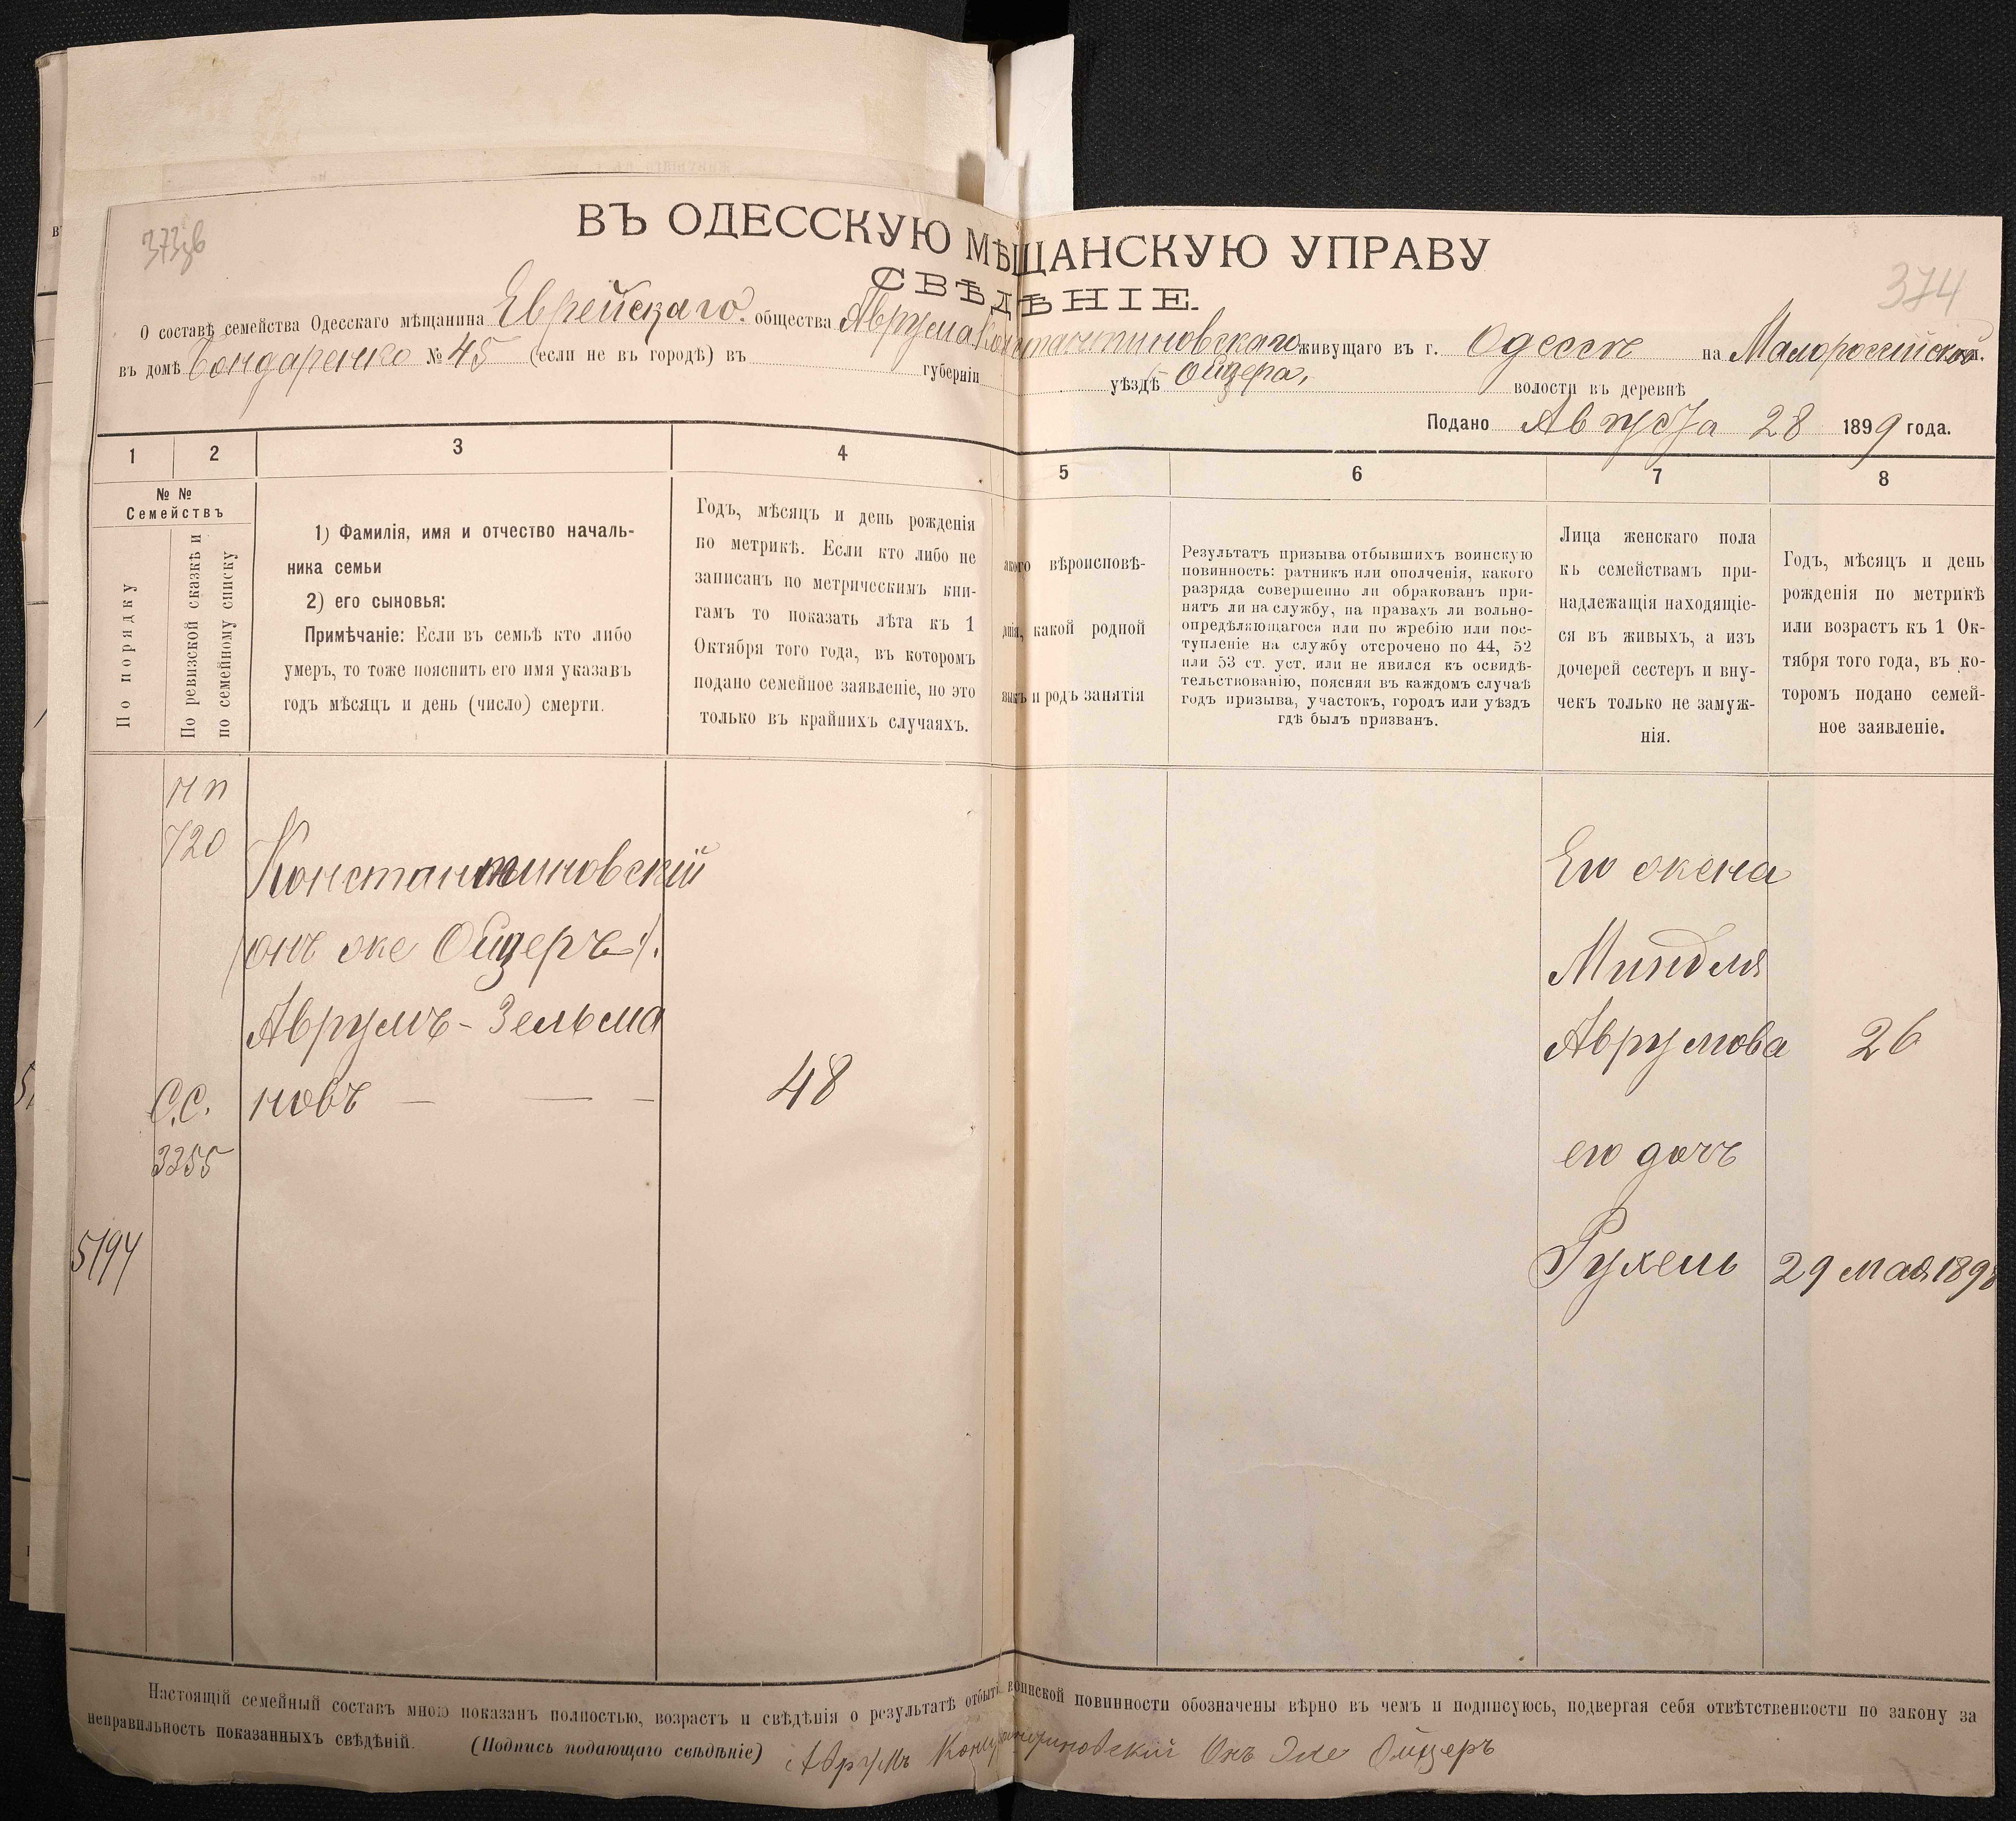 373зв
ВЪ ОДЕССКУЮ МѢЩАНСКУЮ УПРАВУ
374
СВѢДѢНІЕ.
О составѣ семейства Одесскаго мѣщанина Еврейскаго общества Аврума Константиновскаго живущаго въ г. Одессѣ на Малороссійской
въ домѣ Бондаренко № 45 (если не въ городѣ) въ губерніи уѣздѣ Ойцера, волости въ деревнѣ
Подано Августа 28 1899 года.
1 2 3 4 5 6 7 8
№ №
Семействъ
По порядку
По ревизской сказкѣ и
по семейному списку
1) Фамилія, имя и отчество началь-
ника семьи
2) его сыновья:
Примѣчаніе: Если въ семьѣ кто либо
умеръ, то тоже пояснить его имя указавъ
годъ мѣсяцъ и день (число) смерти.
Годъ, мѣсяцъ и день рожденія
по метрикѣ. Если кто либо не
записанъ по метрическимъ кни-
гамъ то показать лѣта къ 1
Октября того года, въ которомъ
подано семейное заявленіе, но это
только въ крайнихъ случаяхъ.
акого вѣроисповѣ-
днія, какой родной
зыкъ и родъ занятія
Результатъ призыва отбывшихъ воинскую
повинность: ратникъ или ополченія, какого
разряда совершенно ли обракованъ при-
нятъ ли на службу, на правахъ ли вольно-
опредѣляющагося или по жребію или пос-
тупленіе на службу отсрочено по 44, 52
или 53 ст. уст. или не явился къ освидѣ-
тельствованію, поясняя въ каждомъ случаѣ
годъ призыва, участокъ, городъ или уѣздъ
гдѣ былъ призванъ.
Лица женскаго пола
къ семействамъ при-
надлежащія находящіе-
ся въ живыхъ, а изъ
дочерей сестеръ и вну-
чекъ только не замуж-
нія.
Годъ, мѣсяцъ и день
рожденія по метрикѣ
или возрастъ къ 1 Ок-
тября того года, въ ко-
торомъ подано семей-
ное заявленіе.
нп
720
Константиновскій
(онъ же Ойцеръ).
Аврумъ-Зельма
новъ — — —
48
С.С.
3255
5194
Его жена
Миндля
Аврумова 26
его дочь
Рухель 29 мая 1898
Настоящій семейный составъ мною показанъ полностью, возрастъ и свѣдѣнія о результатѣ отбыті воинской повинности обозначены вѣрно въ чемъ и подписуюсь, подвергая себя отвѣтственности по закону за
неправильность показанныхъ свѣдѣній. (Подпись подающаго свѣдѣніе) Аврумъ Константиновскій Онъ Же Ойцеръ